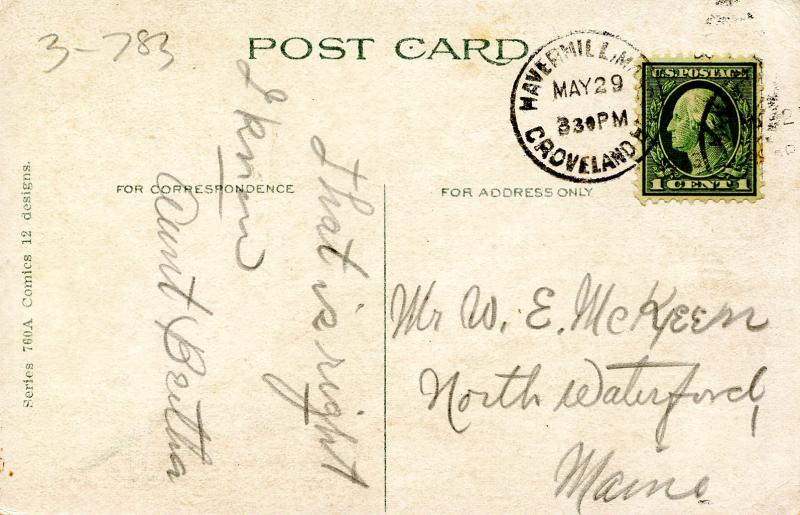 3-783
POST CARD
HAVERHILL, M
MAY 29
330 PM
GROVELAND
U.S. POSTAGE
1 CENT 1
FOR CORRESPONDENCE
FOR ADDRESS ONLY
That is right
I know
Aunt Bertha
Mr W. E. McKeen
North Waterford,
Maine
Series 760A Comics 12 designs.